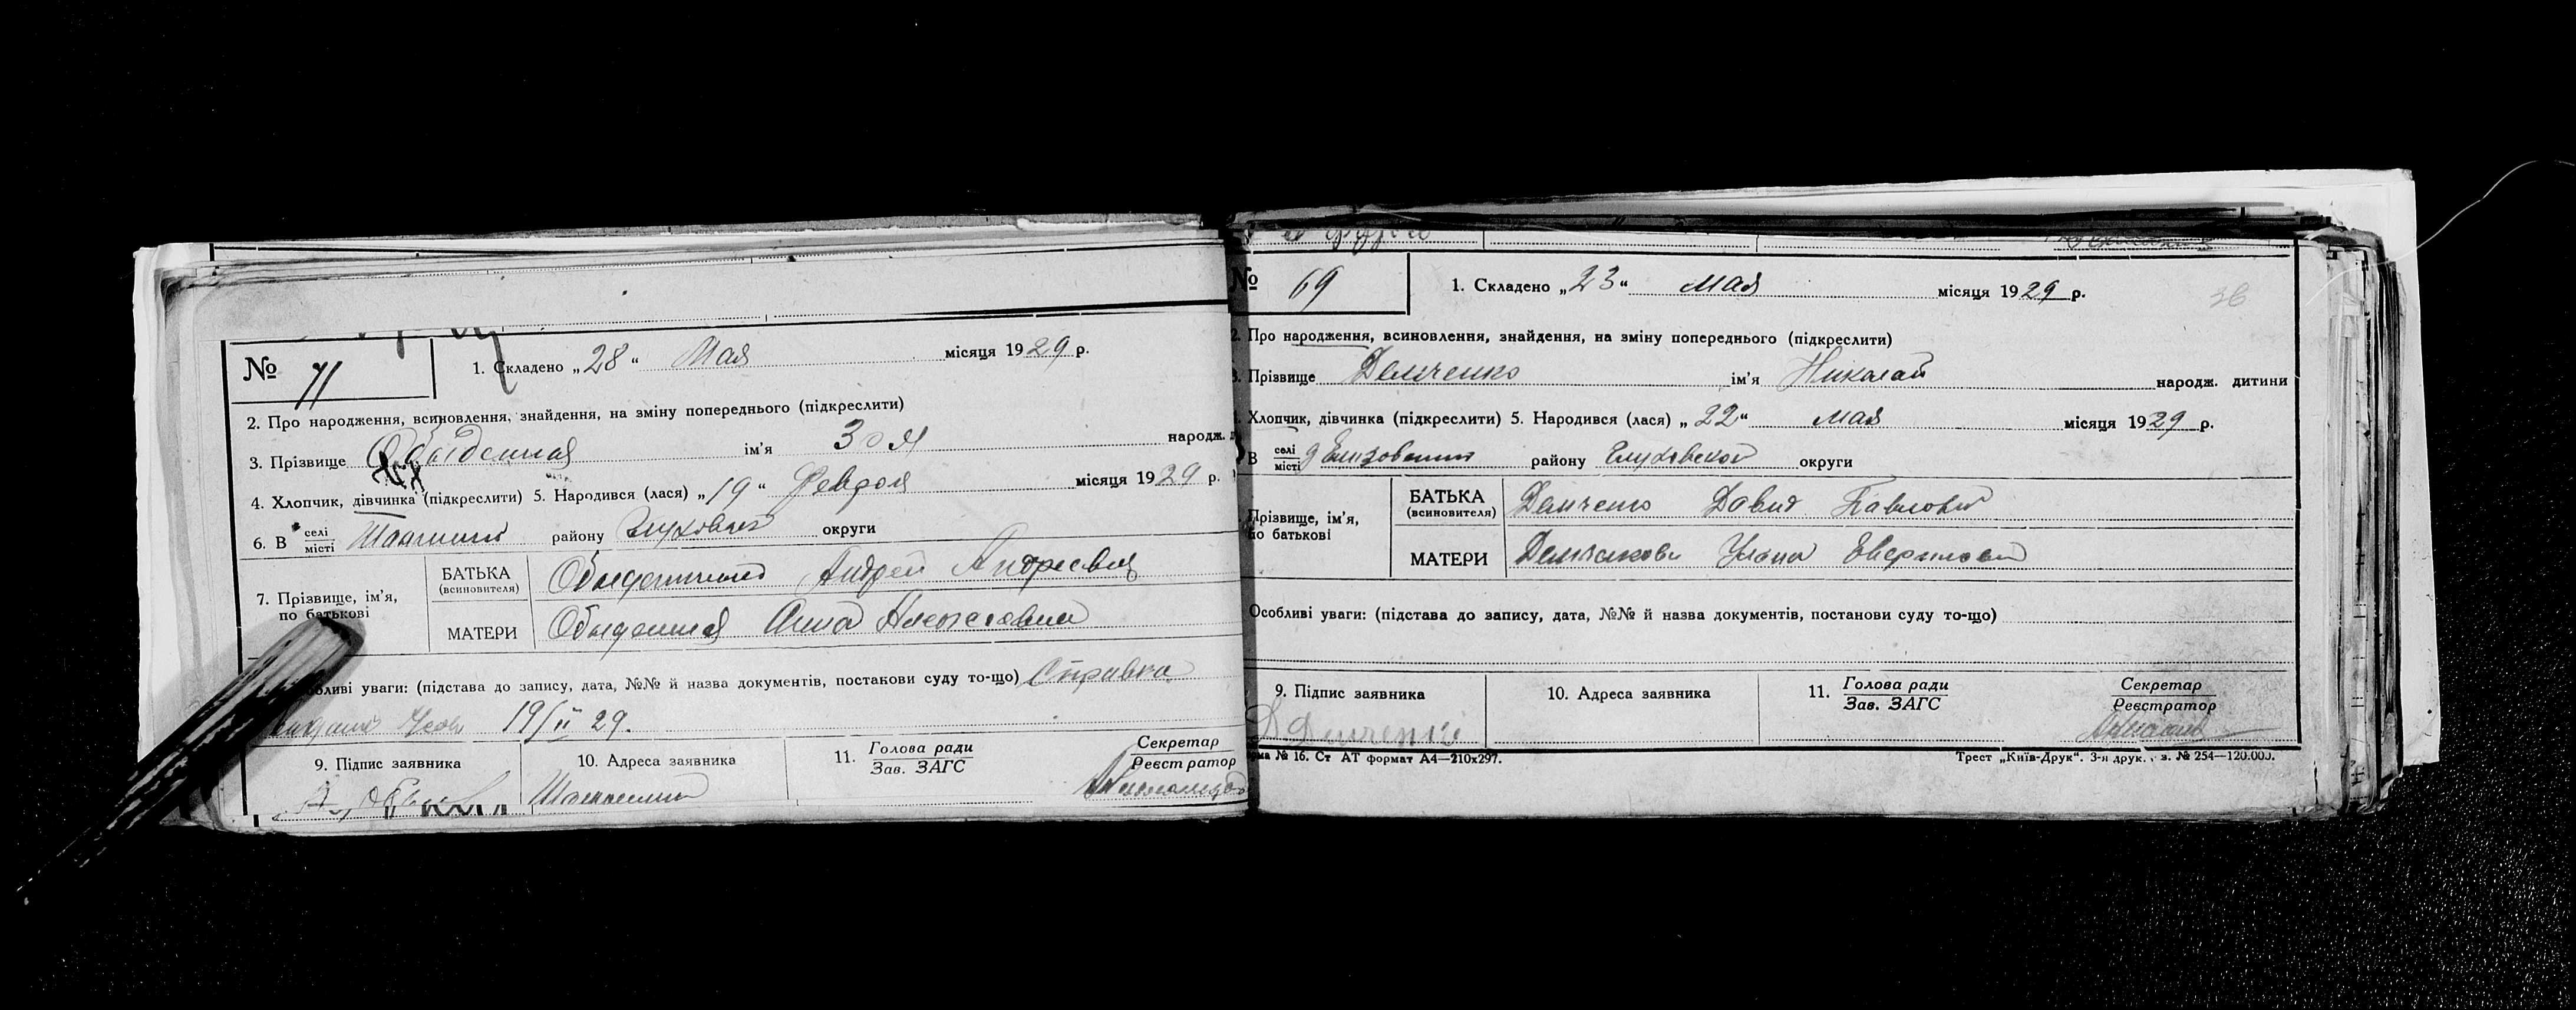 № 71
1. Складено „28“ Мая місяця 1929 р.
2. Про народження, всиновлення, знайдення, на зміну попереднього (підкреслити)
3. Прізвище Обыденная ім'я Зоя народж.
4. Хлопчик, дівчинка (підкреслити) 5. Народився (лася) „19“ Февраля місяця 1929 р.
6. В селі місті району округи
7. Прізвище, ім'я, по батькові
БАТЬКА (всиновителя) Андрей Андреевич
МАТЕРИ Обыденная Анна Алексеевна
уваги: (підстава до запису, дата, №№ й назва документів, постанови суду то-що) Справка
19/II 29.
9. Підпис заявника 10. Адреса заявника 11. Голова ради Зав. ЗАГС Секретар Реєстратор
№ 69
1. Складено „23“ мая місяця 1929 р.
36
2. Про народження, всиновлення, знайдення, на зміну попереднього (підкреслити)
3. Прізвище Демченко ім'я Николай народж. дитини
Хлопчик, дівчинка (підкреслити) 5. Народився (лася) „22“ мая місяця 1929 р.
В селі місті району Глуховской округи
Прізвище, ім'я, по батькові
БАТЬКА (всиновителя) Демченко Давид Павлович
МАТЕРИ Демченкова Ульяна
Особливі уваги: (підстава до запису, дата, №№ й назва документів, постанови суду то-що)
9. Підпис заявника 10. Адреса заявника 11. Голова ради Зав. ЗАГС Секретар Реєстратор
Д Демченко
№ 16. Ст АТ формат А4—210х297. Трест „Київ-Друк“. 3-я друк. з. № 254—120.000.